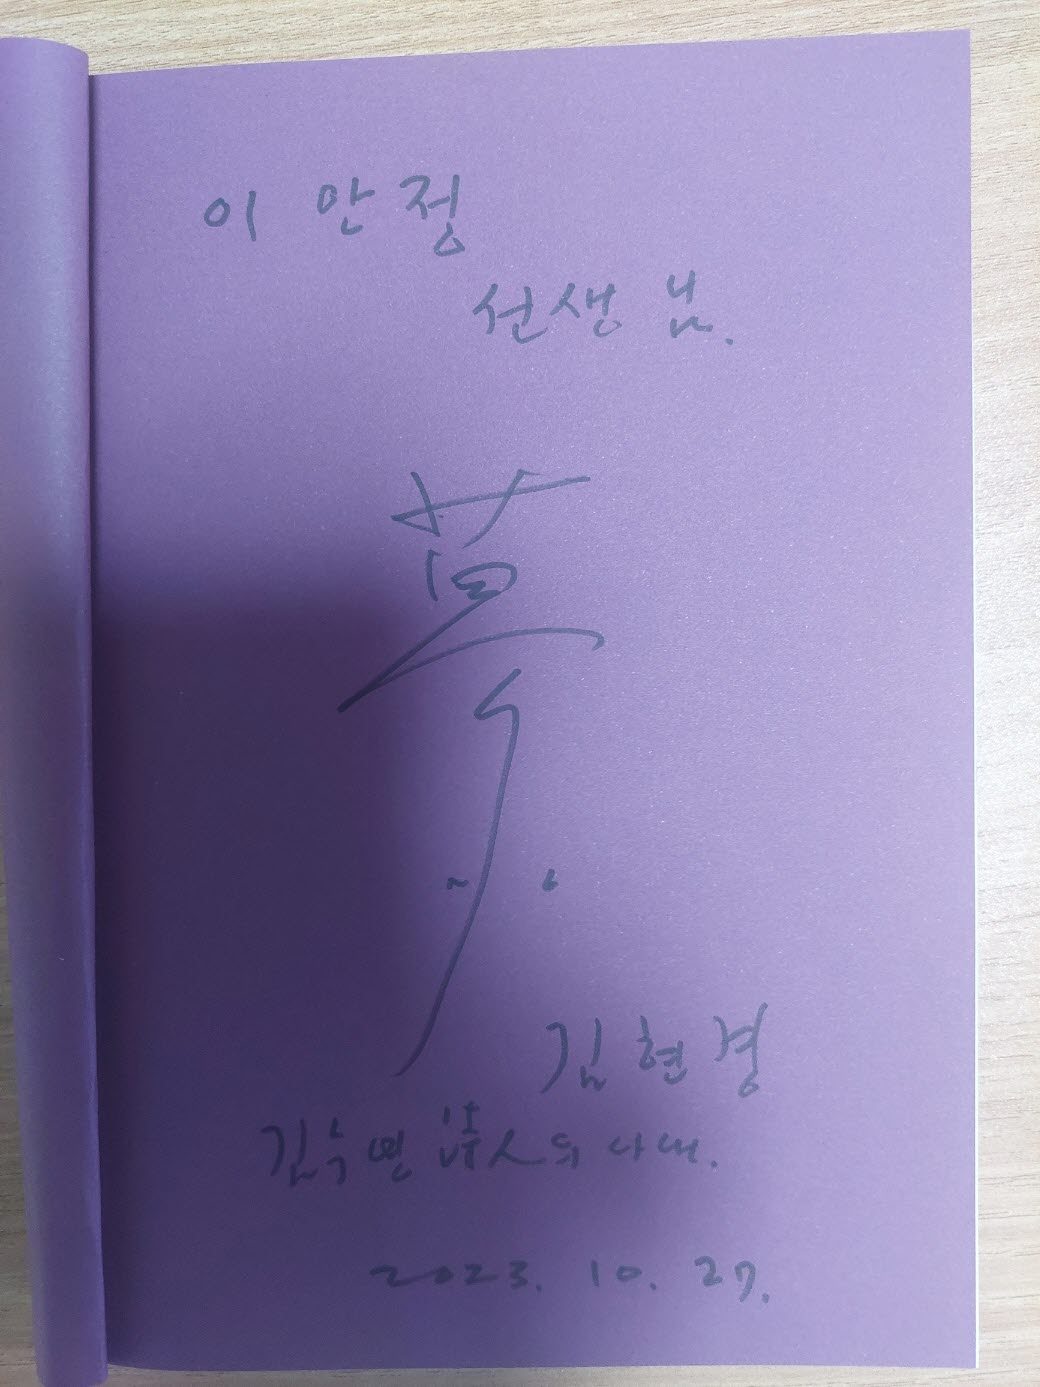 이 안정
선생님.
夢
김현경
김수영 詩人의 아내.
2023. 10. 27.